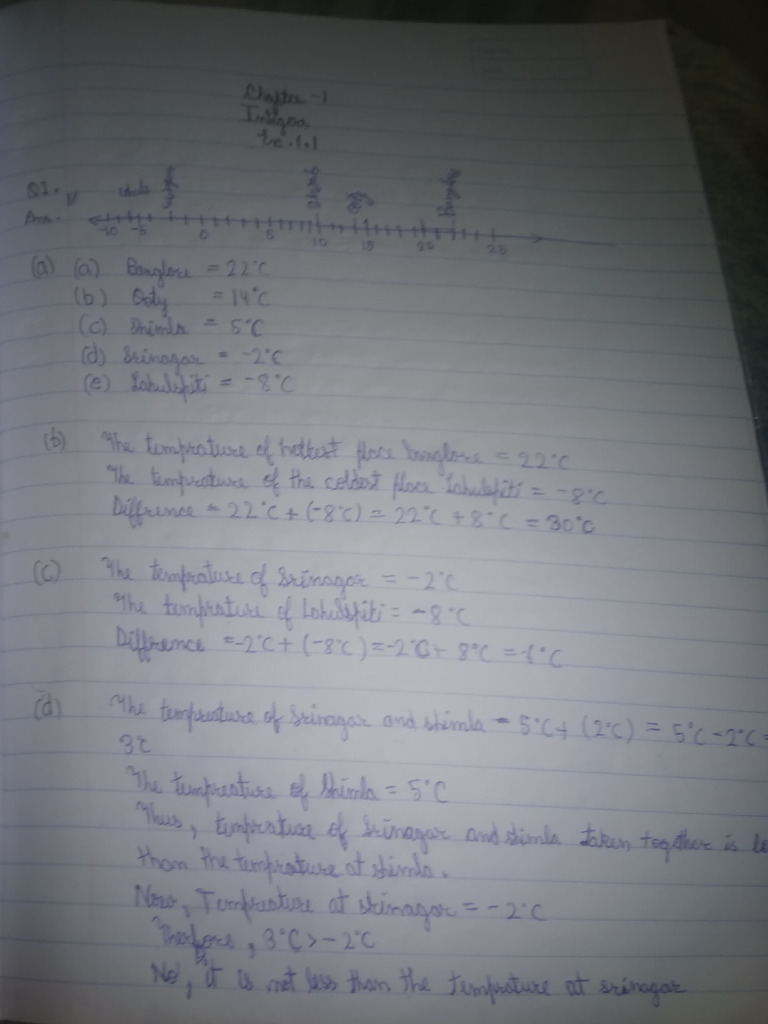 Chapter -1
Integer
Ex. 1.1
Q1.
Ans.
-10 -5 0 5 10 15 20 25
(a) (a) Banglore = 22°C
(b) Ooty = 14°C
(c) Shimla = 5°C
(d) Srinagar = -2°C
(e) Lahulspiti = -8°C
(b) The temprature of hottest place banglore = 22°C
The temprature of the coldest place Lahulspiti = -8°C
Diffrence = 22°C + (-8°C) = 22°C + 8°C = 30°C
(c) The temprature of Srinagar = -2°C
The temprature of Lahulspiti = -8°C
Diffrence = -2°C + (-8°C) = -2°C + 8°C = -6°C
(d) The temprature of Srinagar and shimla = 5°C + (2°C) = 5°C - 2°C =
3°C
The temprature of Shimla = 5°C
Thus, temprature of Srinagar and shimla taken together is le
than the temprature at shimla.
Now, Temprature at srinagar = -2°C
Therefore, 3°C > -2°C
No, it is not less than the temprature at srinagar